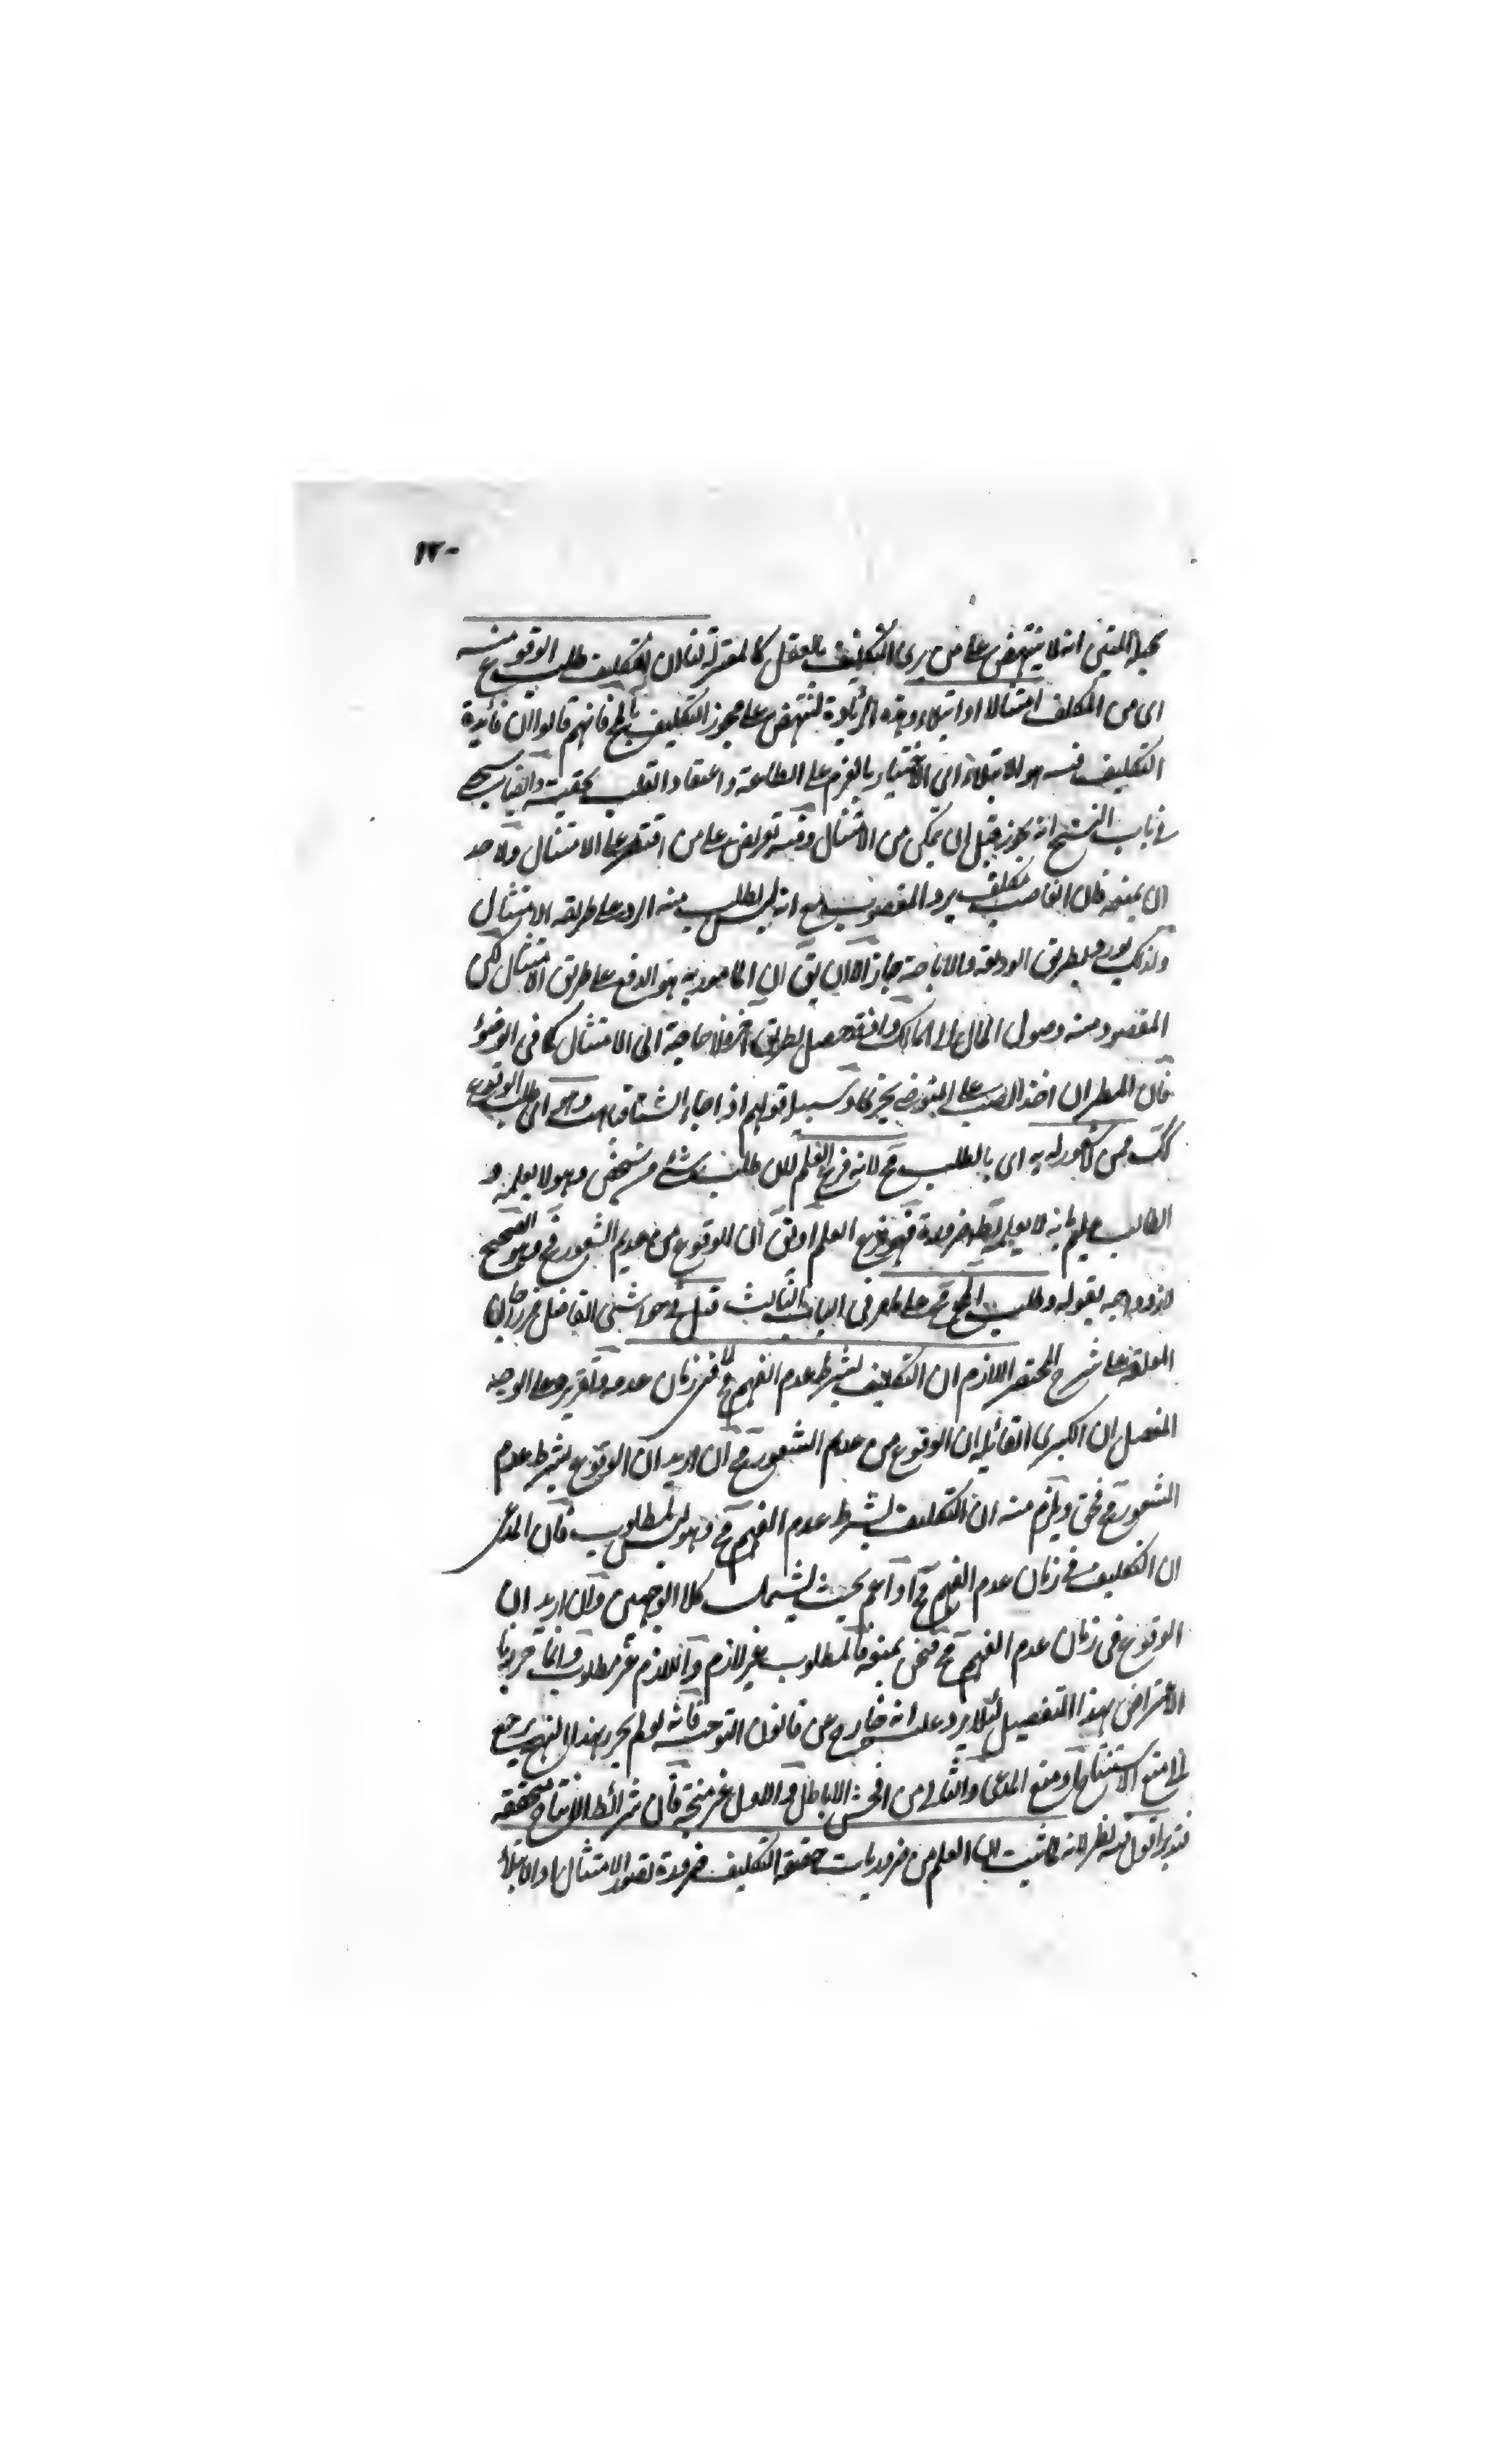 ١٢٠
انه لا ينتهض على من يرى التكليف بالعقل كالمعتزلة لنا ان التكليف طلب الوقوع منه
اى من المكلف امتثالا او ابتلاء وهذه الزيادة لتنتهض على مجوز التكليف بالمح فانهم قالوا ان فائدة
التكليف فيه هو الابتلاء اى الاختبار بالعزم على الطاعة واعتقاد القلب بحقيته
فى باب النسخ انه يجوز قبل ان يتمكن من الامتثال وفيه تعريض على من اقتصر على الامتثال ولاحد
ان يمنعه فان الغاصب مكلف برد المغصوب مع انه ليس يطلب منه الرد على طريقة الامتثال
ولذلك لورد بطريق الوديعة والاباحة جاز الا ان يق ان المامور به هو الدفع على طريق الامتثال لكن
المقصود منه وصول المال الى المالك واذ قد حصل بطريق اخر فلا حاجة الى الامتثال كما فى الوضوء
فان المطر ان اخذ الصب على المتوضى يجزى وسبيله قولهم اذا جاء الشتاء فتاهب وهو اى طلب الوقوع
كك ممن لا شعور له به اى بالطلب مح لانه فرع العلم لان طلب شئ من شخص وهو لا يعلمه و
الطالب عليم بانه لا يعلمه بط ضرورة فهو فرع العلم او يق ان الوقوع من عديم الشعور مح وهو الصحيح
لازدواجه بقوله وطلب المح مح على ما مر فى الباب الثالث قيل فى حواشى الفاضل مرزاجان
المعلقة على شرح المختصر اللازم ان التكليف بشرط عدم الفهم مح لا فى زمان عدمه وتقريره على الوجه
المفصل ان الكبرى القائلة ان الوقوع من عديم الشعور مح ان اريد ان الوقوع بشرط عدم
الشعور مح فحق ويلزم منه ان التكليف بشرط عدم الفهم مح وهو ليس بمطلوب فان المدعى
ان التكليف فى زمان عدم الفهم مح او اعم بحيث يشمل كلا الوجهين وان اريد ان
الوقوع فى زمان عدم الفهم مح فنحن نمنعه فالمطلوب غير لازم واللازم غير مطلوب وانما حررنا
الاعتراض بهذا التفصيل لئلا يرد عليه انه خارج عن قانون التوجيه فانه لو لم يحرر بهذا النهج يرجع
الى منع الاستنتاج او منع المدعى والثانى من افحش الاباطيل والاول غير متجه فان شرائط الانتاج متحققة
فتدبر اقول فيه نظر لانه لما ثبت ان العلم من ضروريات حقيقة التكليف ضرورة تصور الامتثال او الابتلاء